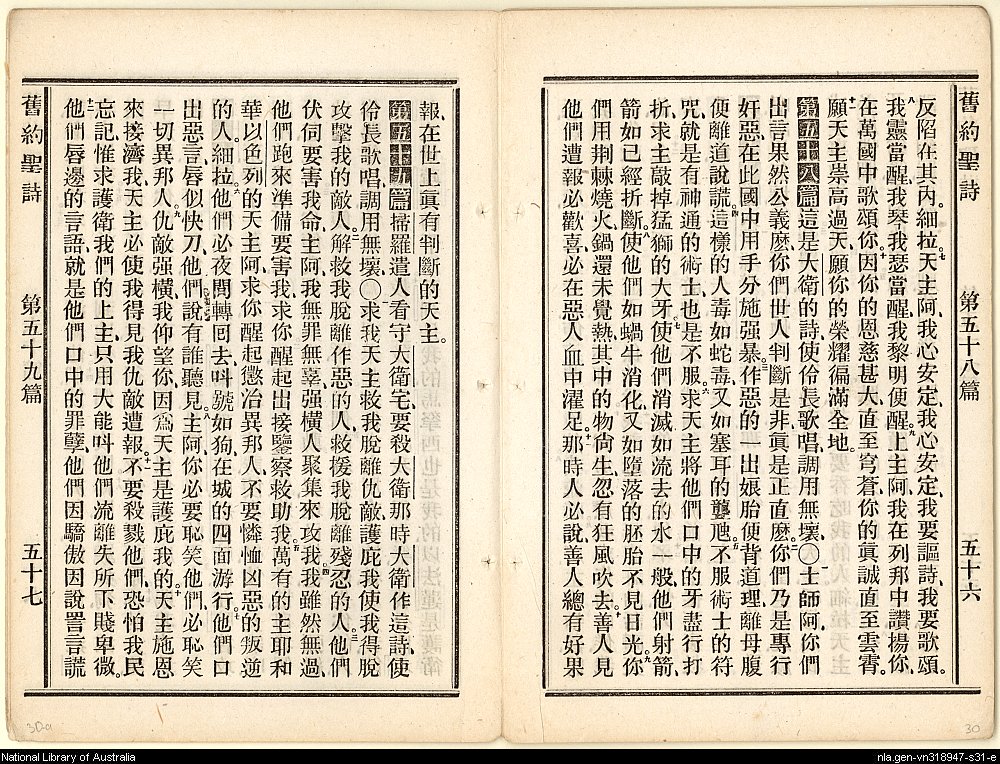 舊約聖詩 第五十八篇 五十六
反陷在其內細拉七天主阿我心安定我心安定我要謳詩我要歌頌
八我靈當醒我琴我瑟當醒我黎明便醒九上主阿我在列邦中讚揚你
在萬國中歌頌你十因你的恩慈甚大直至穹蒼你的眞誠直至雲霄
十一願天主崇高過天願你的榮耀徧滿全地
第五十八篇 這是大衛的詩使伶長歌唱調用無壞〇一士師阿你們
出言果然公義麽你們世人判斷是非眞是正直麽二你們乃是專行
奸惡在此國中用手分施强暴三作惡的一出娘胎便背道理離母腹
便離道說謊四這樣的人毒如蛇毒又如塞耳的聾虺五不服術士的符
咒就是有神通的術士也是不服六求天主將他們口中的牙盡行打
折求主敲掉猛獅的大牙七使他們消滅如流去的水一般他們射箭
箭如已經折斷八使他們如蝸牛消化又如墮落的胚胎不見日光九你
們用荆棘燒火鍋還未覺熱其中的物尙生忽有狂風吹去十善人見
他們遭報必歡喜必在惡人血中濯足十一那時人必說善人總有好果
報在世上眞有判斷的天主
第五十九篇 掃羅遣人看守大衛宅要殺大衛那時大衛作這詩使
伶長歌唱調用無壞〇一求我天主救我脫離仇敵護庇我使我得脫
攻擊我的敵人二解救我脫離作惡的人救援我脫離殘忍的人三他們
伏伺要害我命主阿我無罪無辜强橫人聚集來攻我四我雖然無過
他們跑來準備要害我求你醒起出接鑒察救助我五萬有的主耶和
華以色列的天主阿求你醒起懲治異邦人不要憐恤凶惡的叛逆
的人細拉六他們必夜間轉囘去呌號如狗在城的四面游行七他們口
出惡言唇似快刀他們說有誰聽見八主阿你必要恥笑他們必恥笑
一切異邦人九仇敵强橫我仰望你因爲天主是護庇我的十天主施恩
來接濟我天主必使我得見我仇敵遭報十一不要殺戮他們恐怕我民
忘記惟求護衛我們的上主只用大能呌他們流離失所下賤卑微
十二他們唇邊的言語就是他們口中的罪孽他們因驕傲因說詈言謊
舊約聖詩 第五十九篇 五十七
30a
30
National Library of Australia
nla.gen-vn318947-s31-e